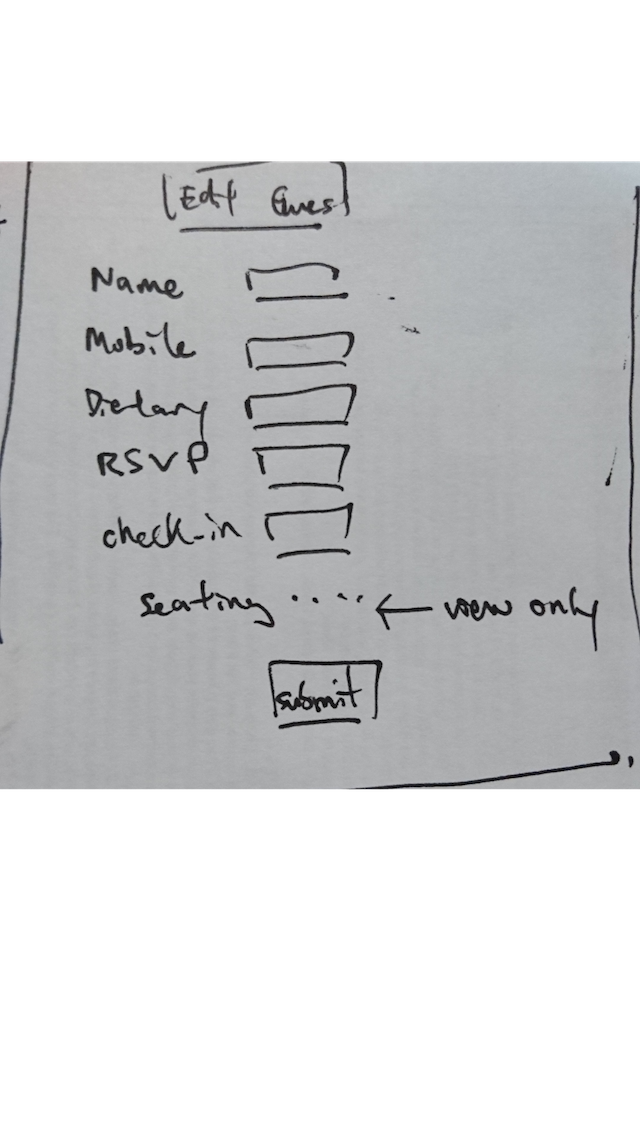 Edit Guest
Name
Mobile
Dietary
RSVP
check-in
seating .... ← view only
submit